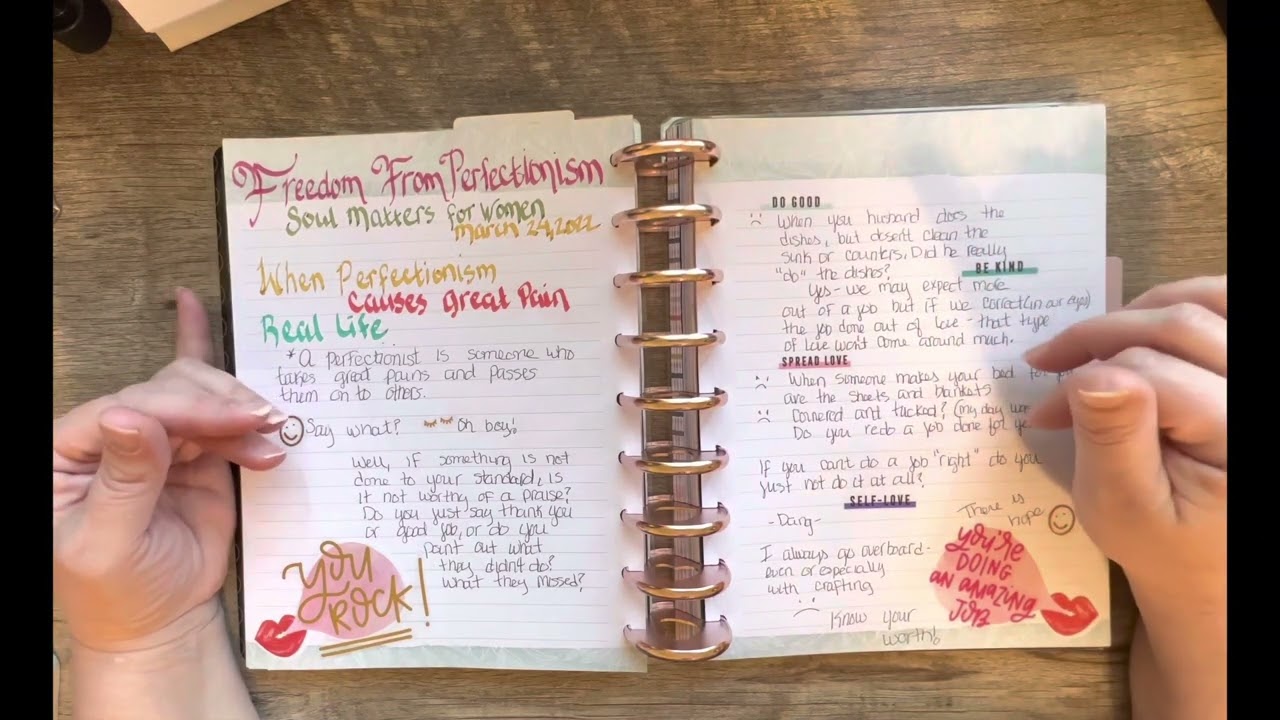 Freedom From Perfectionism
Soul Matters for Women
March 24, 2022
When Perfectionism
causes great Pain
Real Life
*A perfectionist is someone who
takes great pains and passes
them on to others.
Say what? Oh boy!
Well, if something is not
done to your standard, is
it not worthy of a praise?
Do you just say thank you
or good job, or do you
point out what
they didn't do?
What they missed?
YOU ROCK!
DO GOOD
When you husband does the
dishes, but dosen't clean the
sink or counters. Did he really
"do" the dishes?
BE KIND
Yes - we may expect more
out of a job but if we correct (in our eyes)
the job done out of love - that type
of love won't come around much.
SPREAD LOVE
When someone makes your bed for
are the sheets and blankets
covered and tucked? (my day
Do you redo a job done for
If you can't do a job "right" do you
just not do it at all?
SELF-LOVE
-Dang-
There is
hope
I always go overboard -
even or especially
with crafting
Know your
worth!
you're
DOING
AN AMAZING
JOB